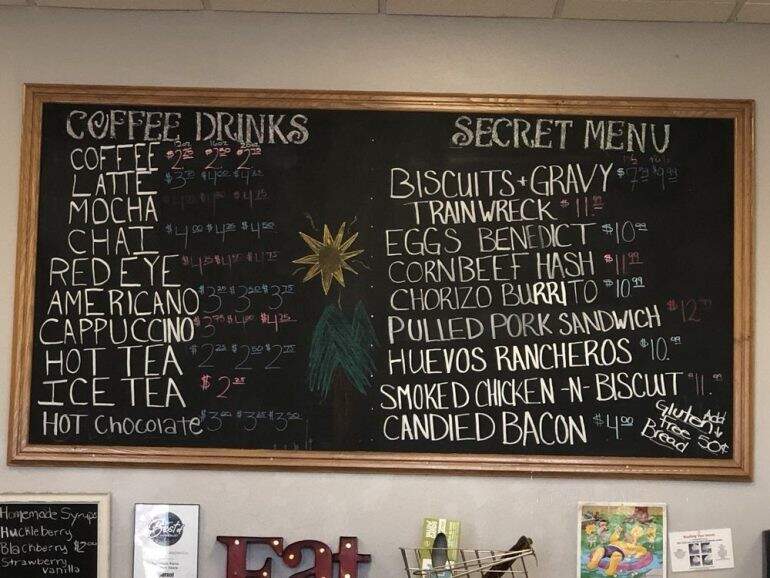 COFFEE DRINKS
12oz 16oz 20oz
COFFEE $2.25 2.50 2.75
LATTE $3.75 $4.00 $4.25
MOCHA
CHAI $4.00 $4.25 $4.50
RED EYE $4.25 $4.50 $4.75
AMERICANO $3.25 $3.50 $3.75
CAPPUCCINO $3.75 $4.00 $4.25
HOT TEA $2.25 $2.50 $2.75
ICE TEA $2.25
HOT Chocolate $3.00 $3.25 $3.50
SECRET MENU
BISCUITS + GRAVY
TRAINWRECK $11.99
EGGS BENEDICT $10.99
CORNBEEF HASH $11.99
CHORIZO BURRITO $10.99
PULLED PORK SANDWICH $12.99
HUEVOS RANCHEROS $10.99
SMOKED CHICKEN -N- BISCUIT $11.99
CANDIED BACON $4.00
Gluten free Bread
Add 50¢
Homemade Syrups
Huckleberry
Blackberry $2.00
Strawberry
Vanilla
Best of
Eat